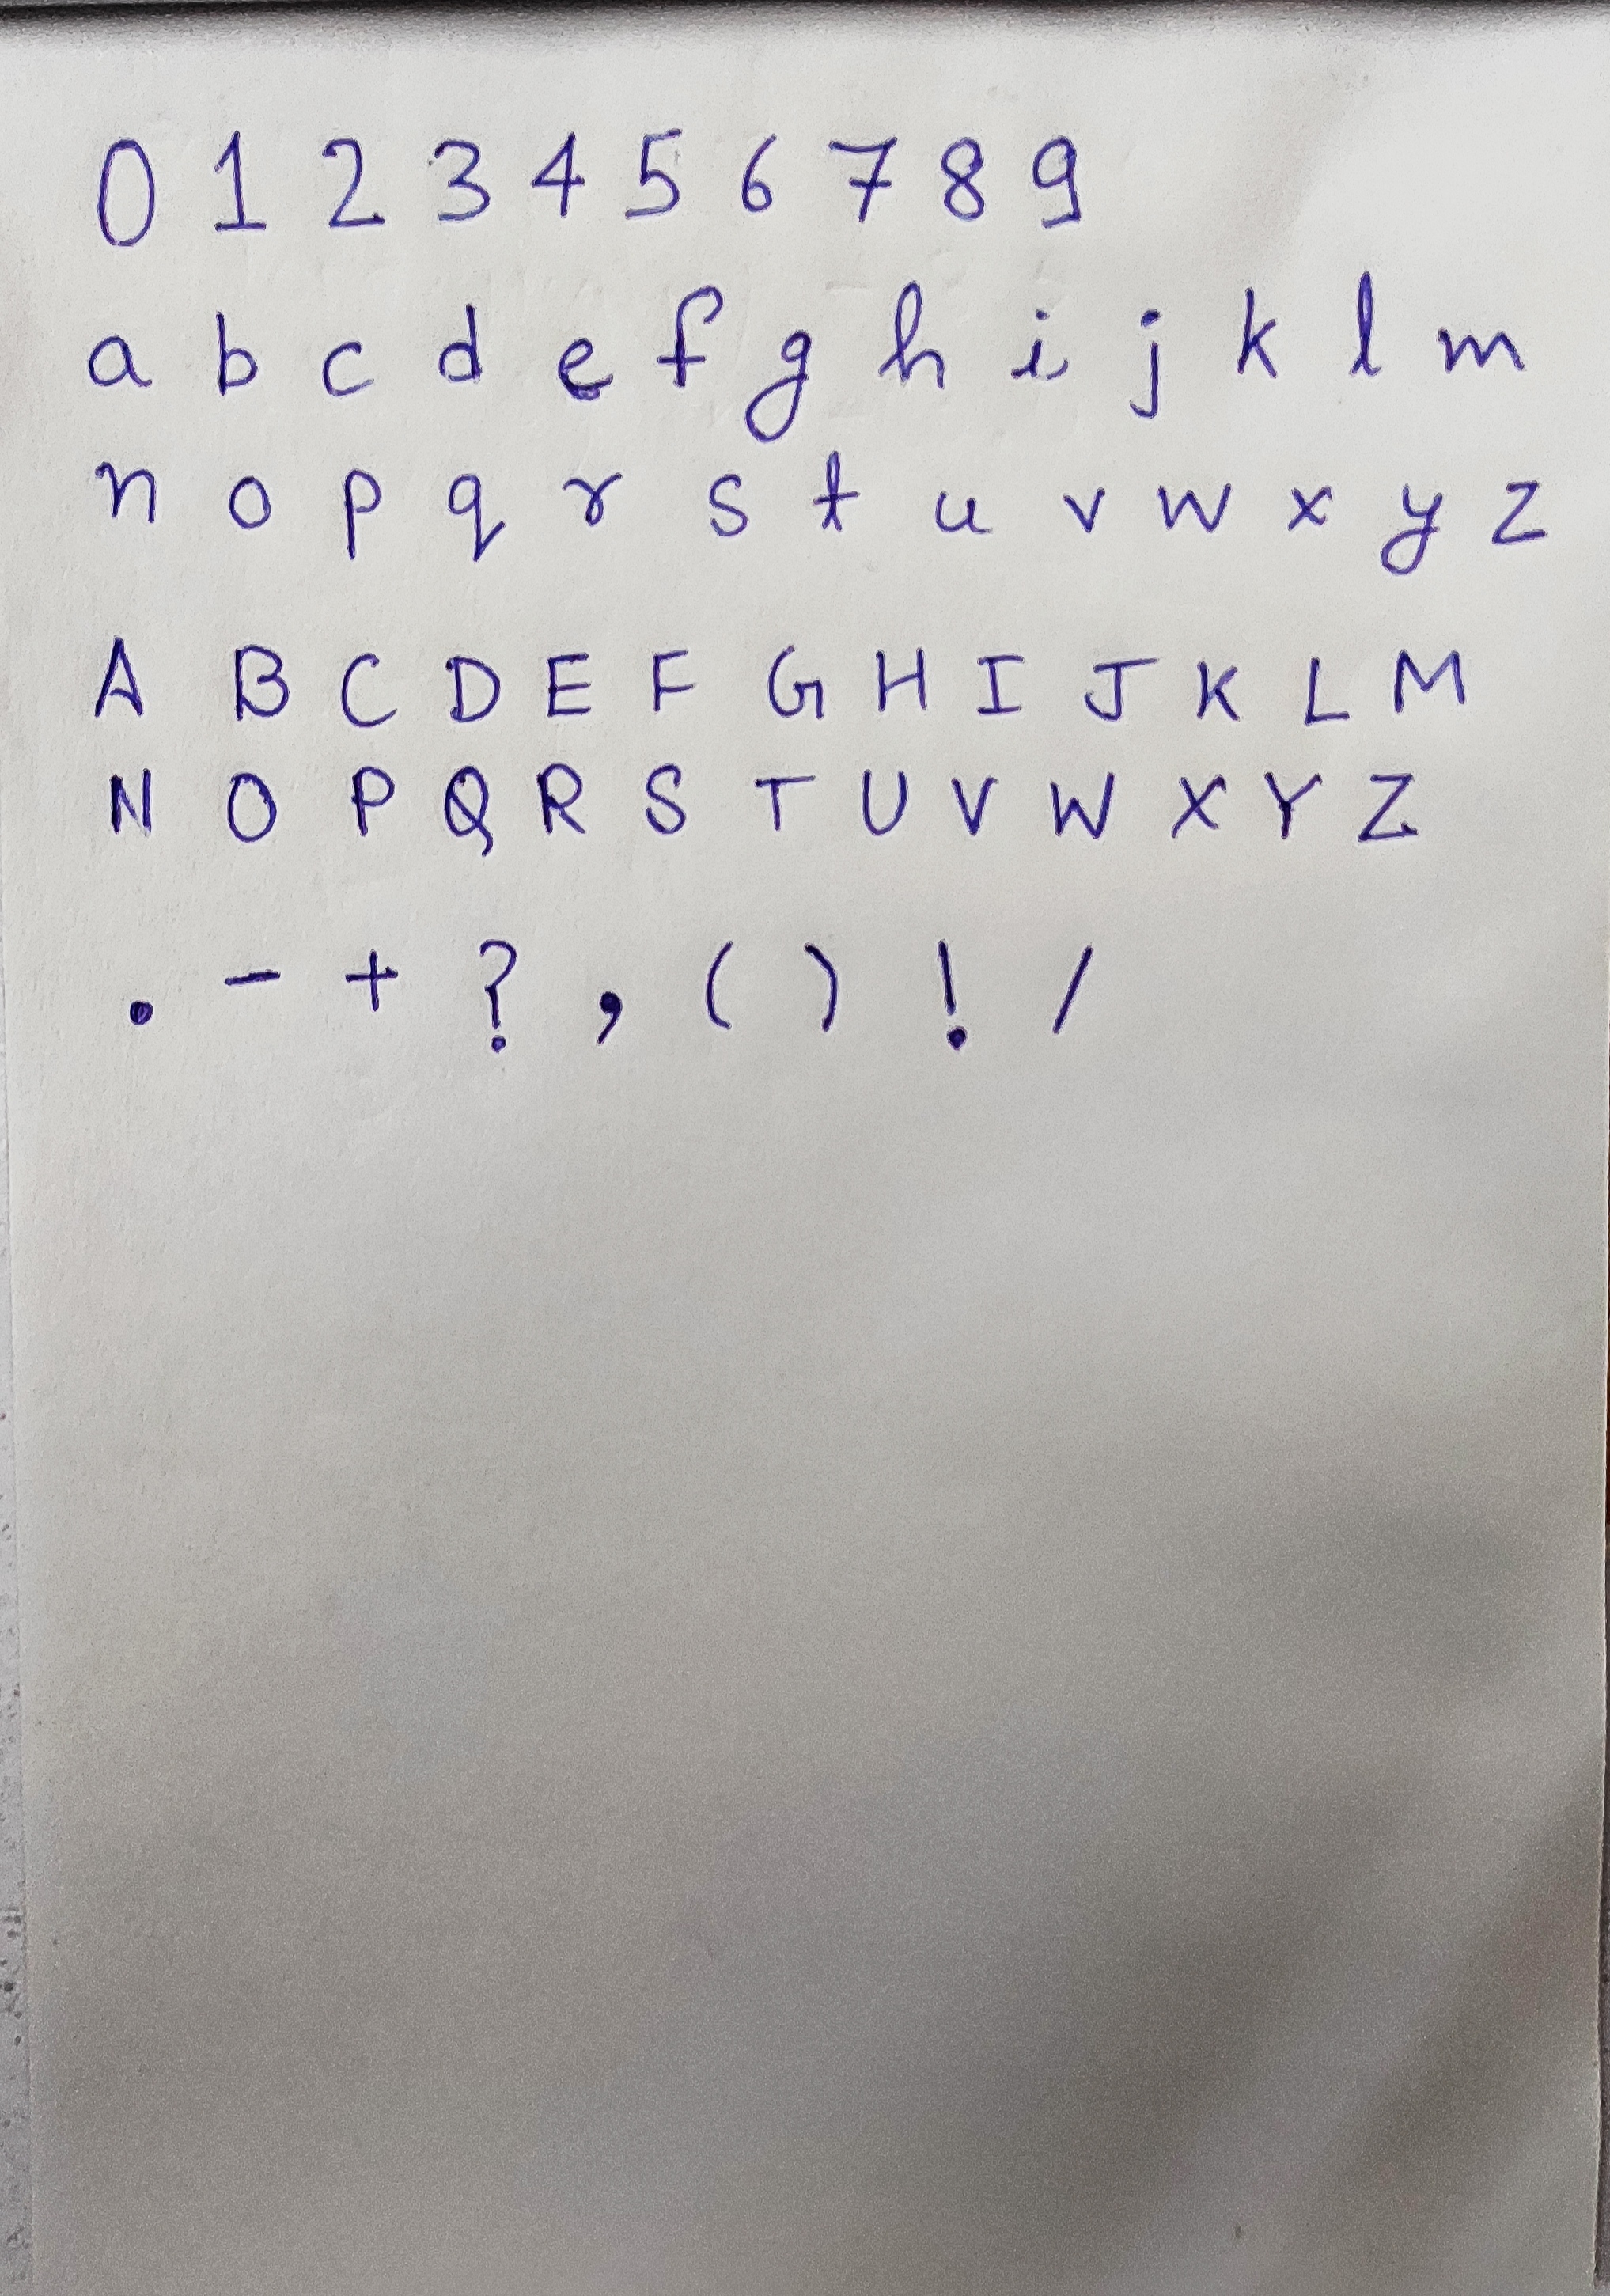 0 1 2 3 4 5 6 7 8 9
a b c d e f g h i j k l m
n o p q r s t u v w x y z
A B C D E F G H I J K L M
N O P Q R S T U V W X Y Z
. - + ? , ( ) ! /